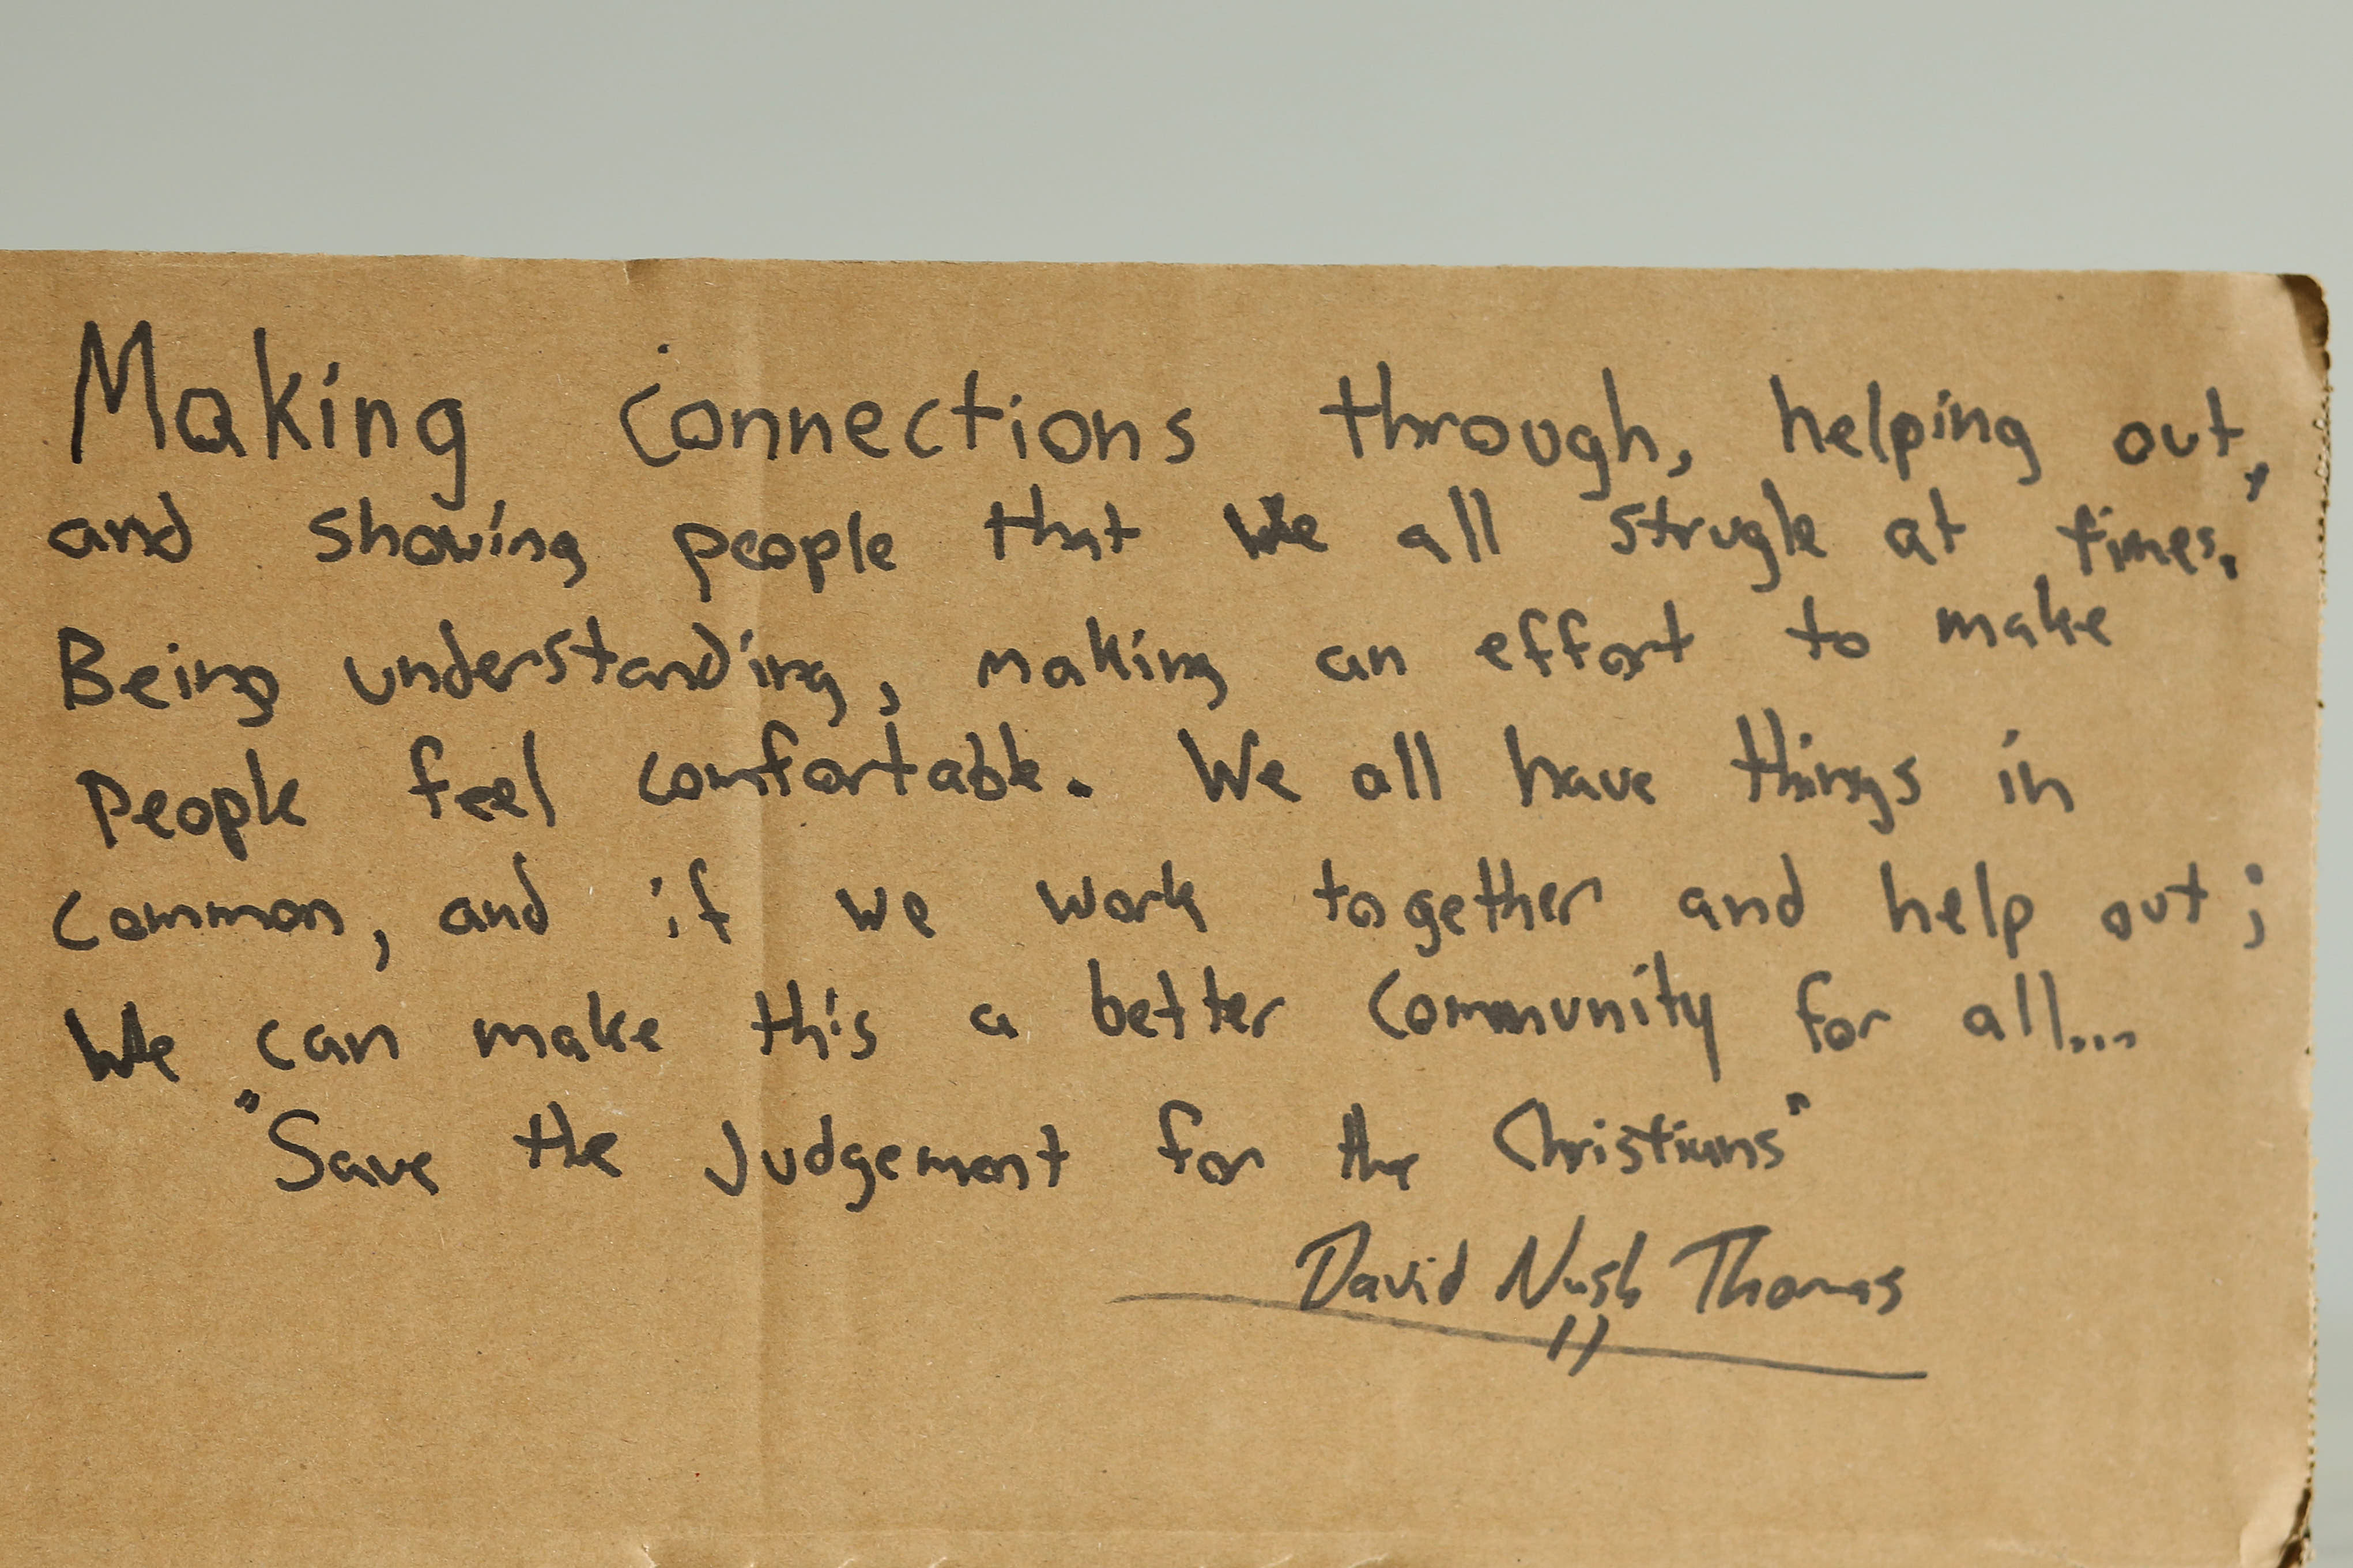 Making connections through, helping out,
and showing people that we all strugle at times.
Being understanding, making an effort to make
People feel comfortable. We all have things in
common, and if we work together and help out;
We can make this a better community for all...
"Save the Judgement for the Christians"
David Nash Thomas